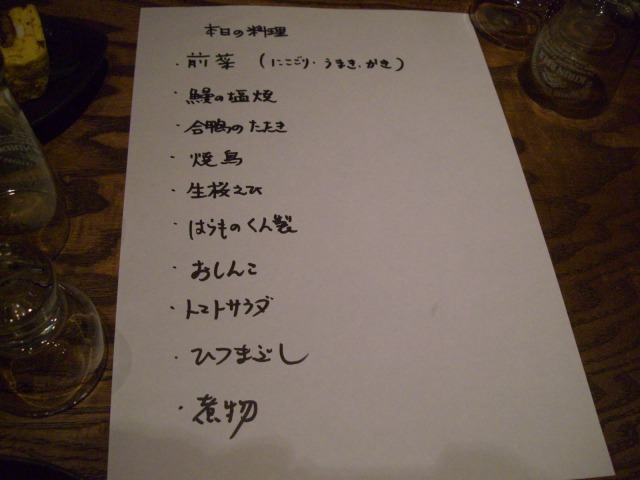 本日の料理
・前菜 (にこごり・うまき・かき)
・鰻の塩焼
・合鴨のたたき
・焼鳥
・生桜えび
・はらものくん製
・おしんこ
・トマトサラダ
・ひつまぶし
・煮物